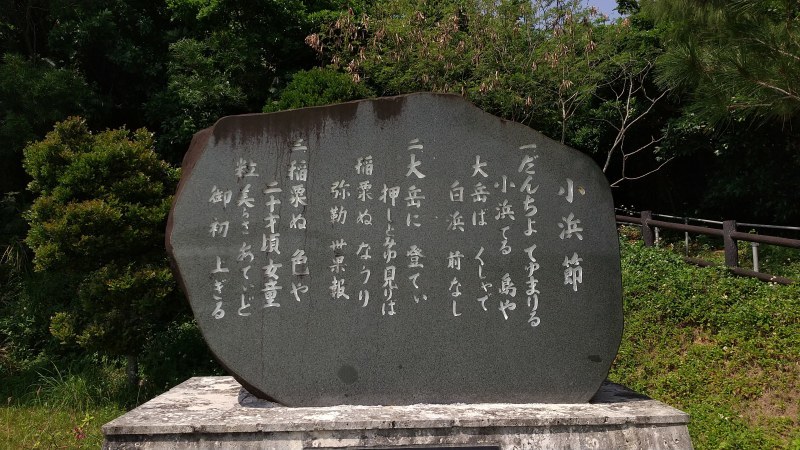 小浜節
一だんちよ てゆまりる
小浜てる 島や
大岳ば くしやで
白浜 前なし
二大岳に 登てい
押しとみゆ見りば
稲粟ぬ なうり
弥勒 世果報
三稲粟ぬ 色や
二十才頃女童
粒美らさあてぃど
御初 上ぎる